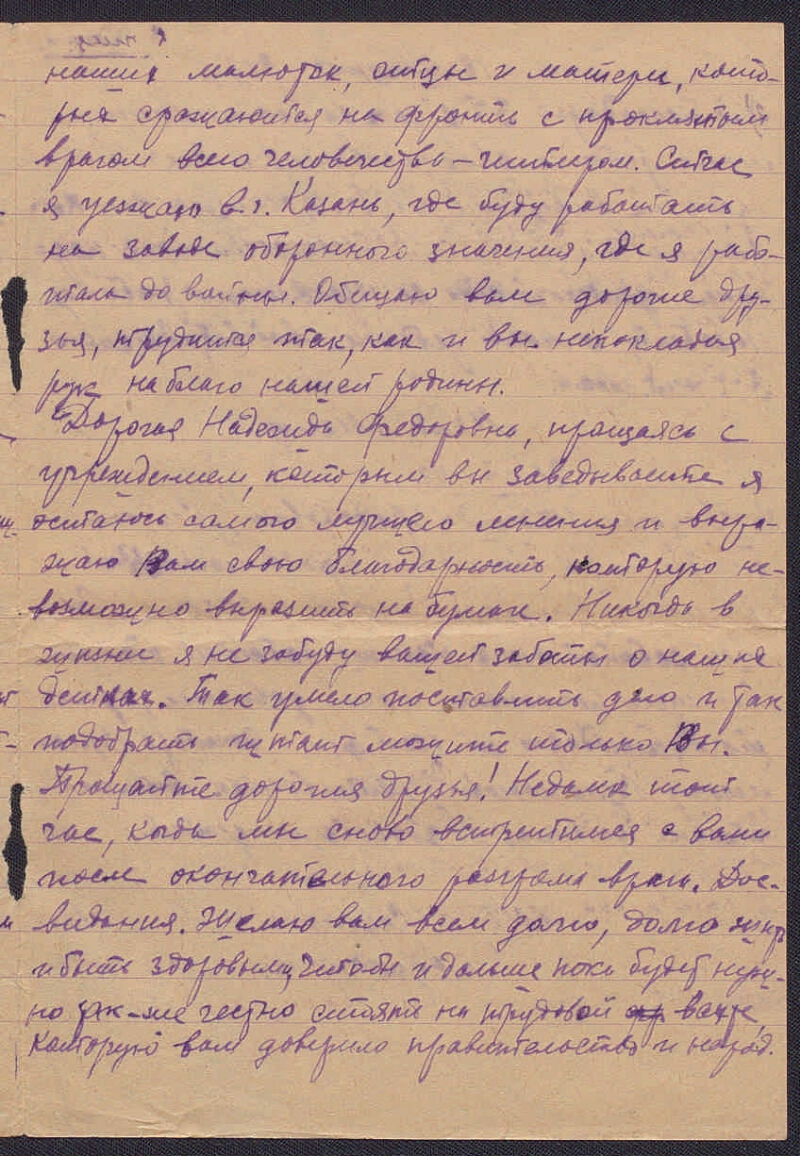 наших малюток, отцы и матери, кото-
рые сражаются на фронте с проклятым
врагом всего человечества – гитлером. Сейчас
я уезжаю в г. Казань, где буду работать
на заводе оборонного значения, где я рабо-
тала до войны. Обещаю вам дорогие дру-
зья, трудится так, как и вы непокладая
рук на благо нашей родины.
Дорогая Надежда Федоровна, прощаясь с
учреждением, которым вы заведываете я
остаюсь самого лучшего мнения и выра-
жаю Вам свою благодарность, которую не-
возможно выразить на бумаге. Никогда в
жизни я не забуду вашей заботы о наших
детках. Так умело поставить дело и так
подобрать можите только Вы.
Прощайте дорогия друзья! Недалек тот
час, когда мы снова встретимся с вами
после окончательного разгрома врага. Дос-
видания. Желаю вам всем долго, долго жить
и быть здоровыми, чтобы и дальше пока будет нуж-
но так-же честно стоять на трудовой вахте,
которую вам доверило правительство и народ.